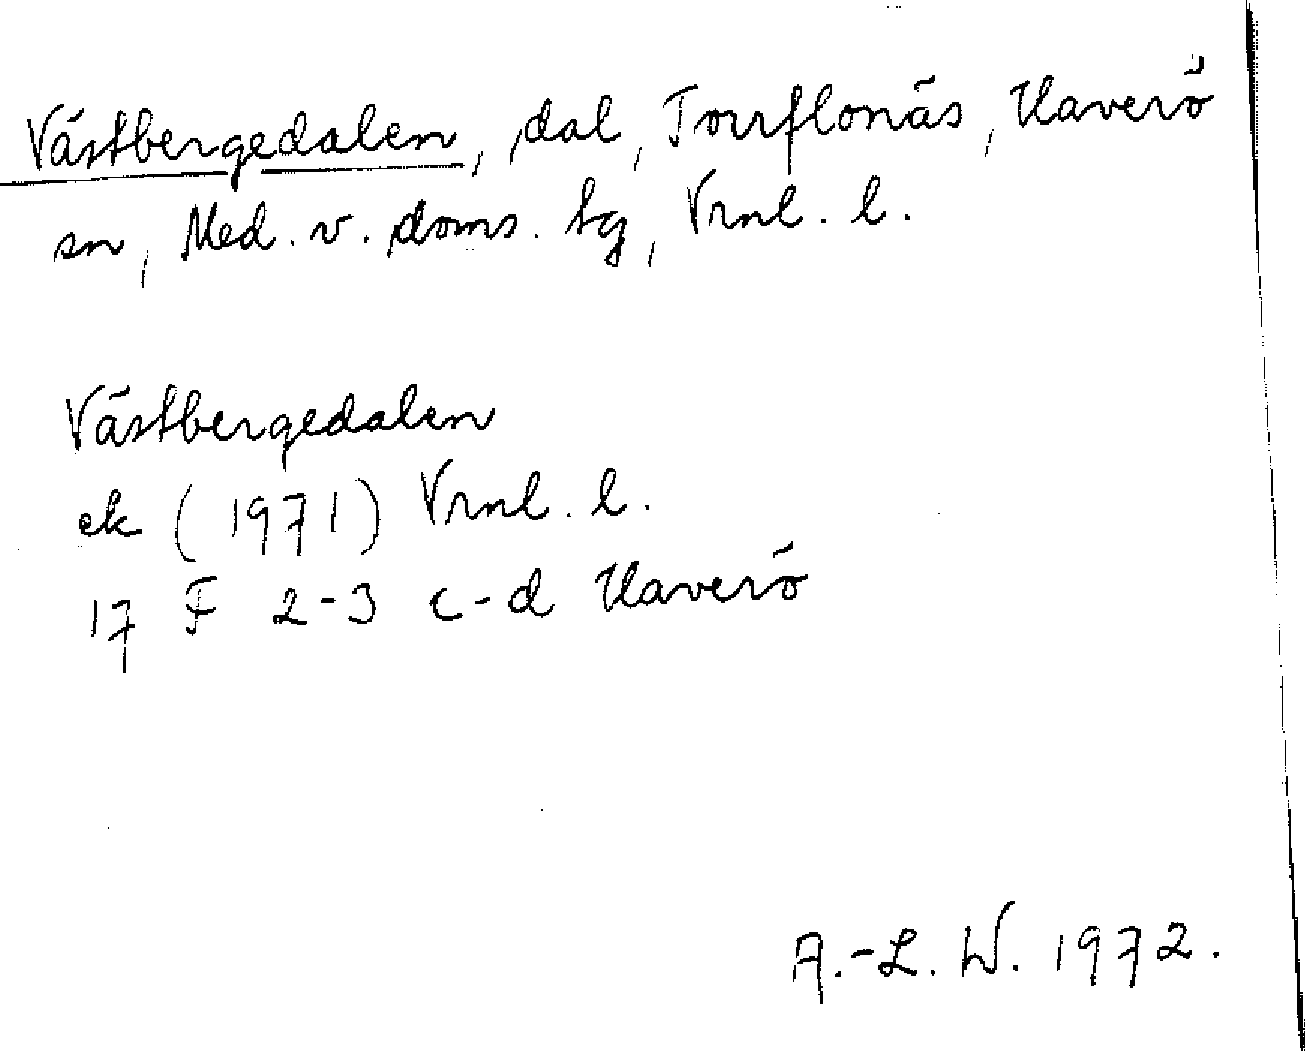 Västbergedalen, dal, Torrflonäs, Haverö
sn, Med. v. doms. tg, Vrnl. l.
Västbergedalen
ek (1971) Vrnl. l.
17 F 2-3 c-d Haverö
A.-L. W. 1972.